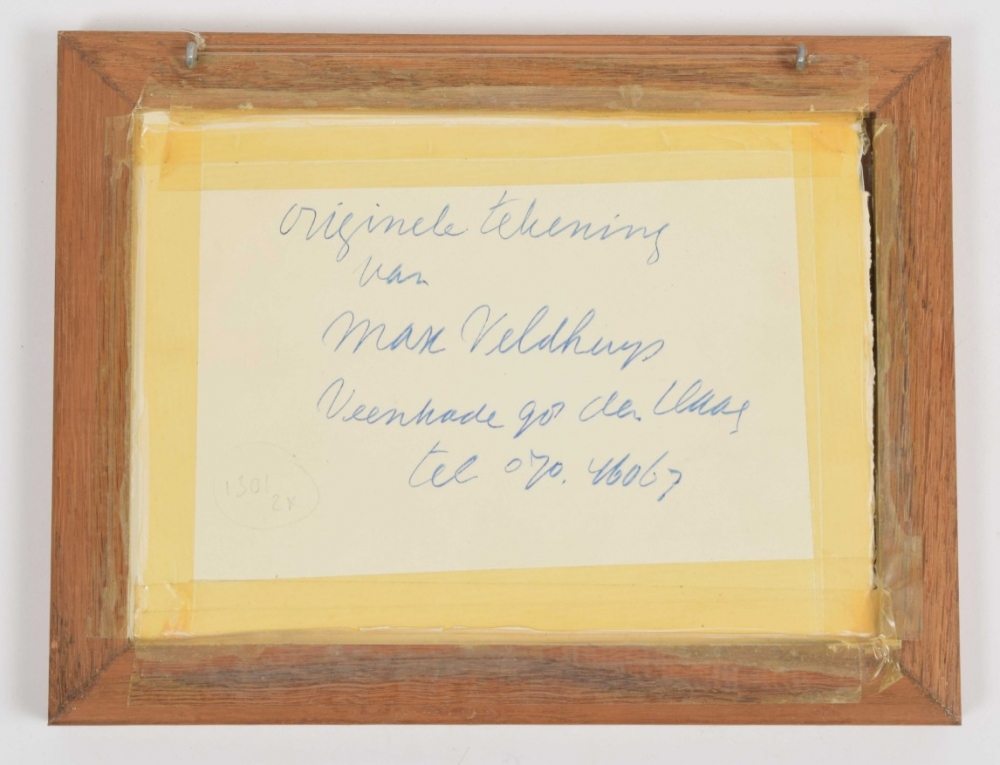 Originele tekening
van
Max Veldhuys
Veenkade 98 Den Haag
tel 070. 46067
1301
2x